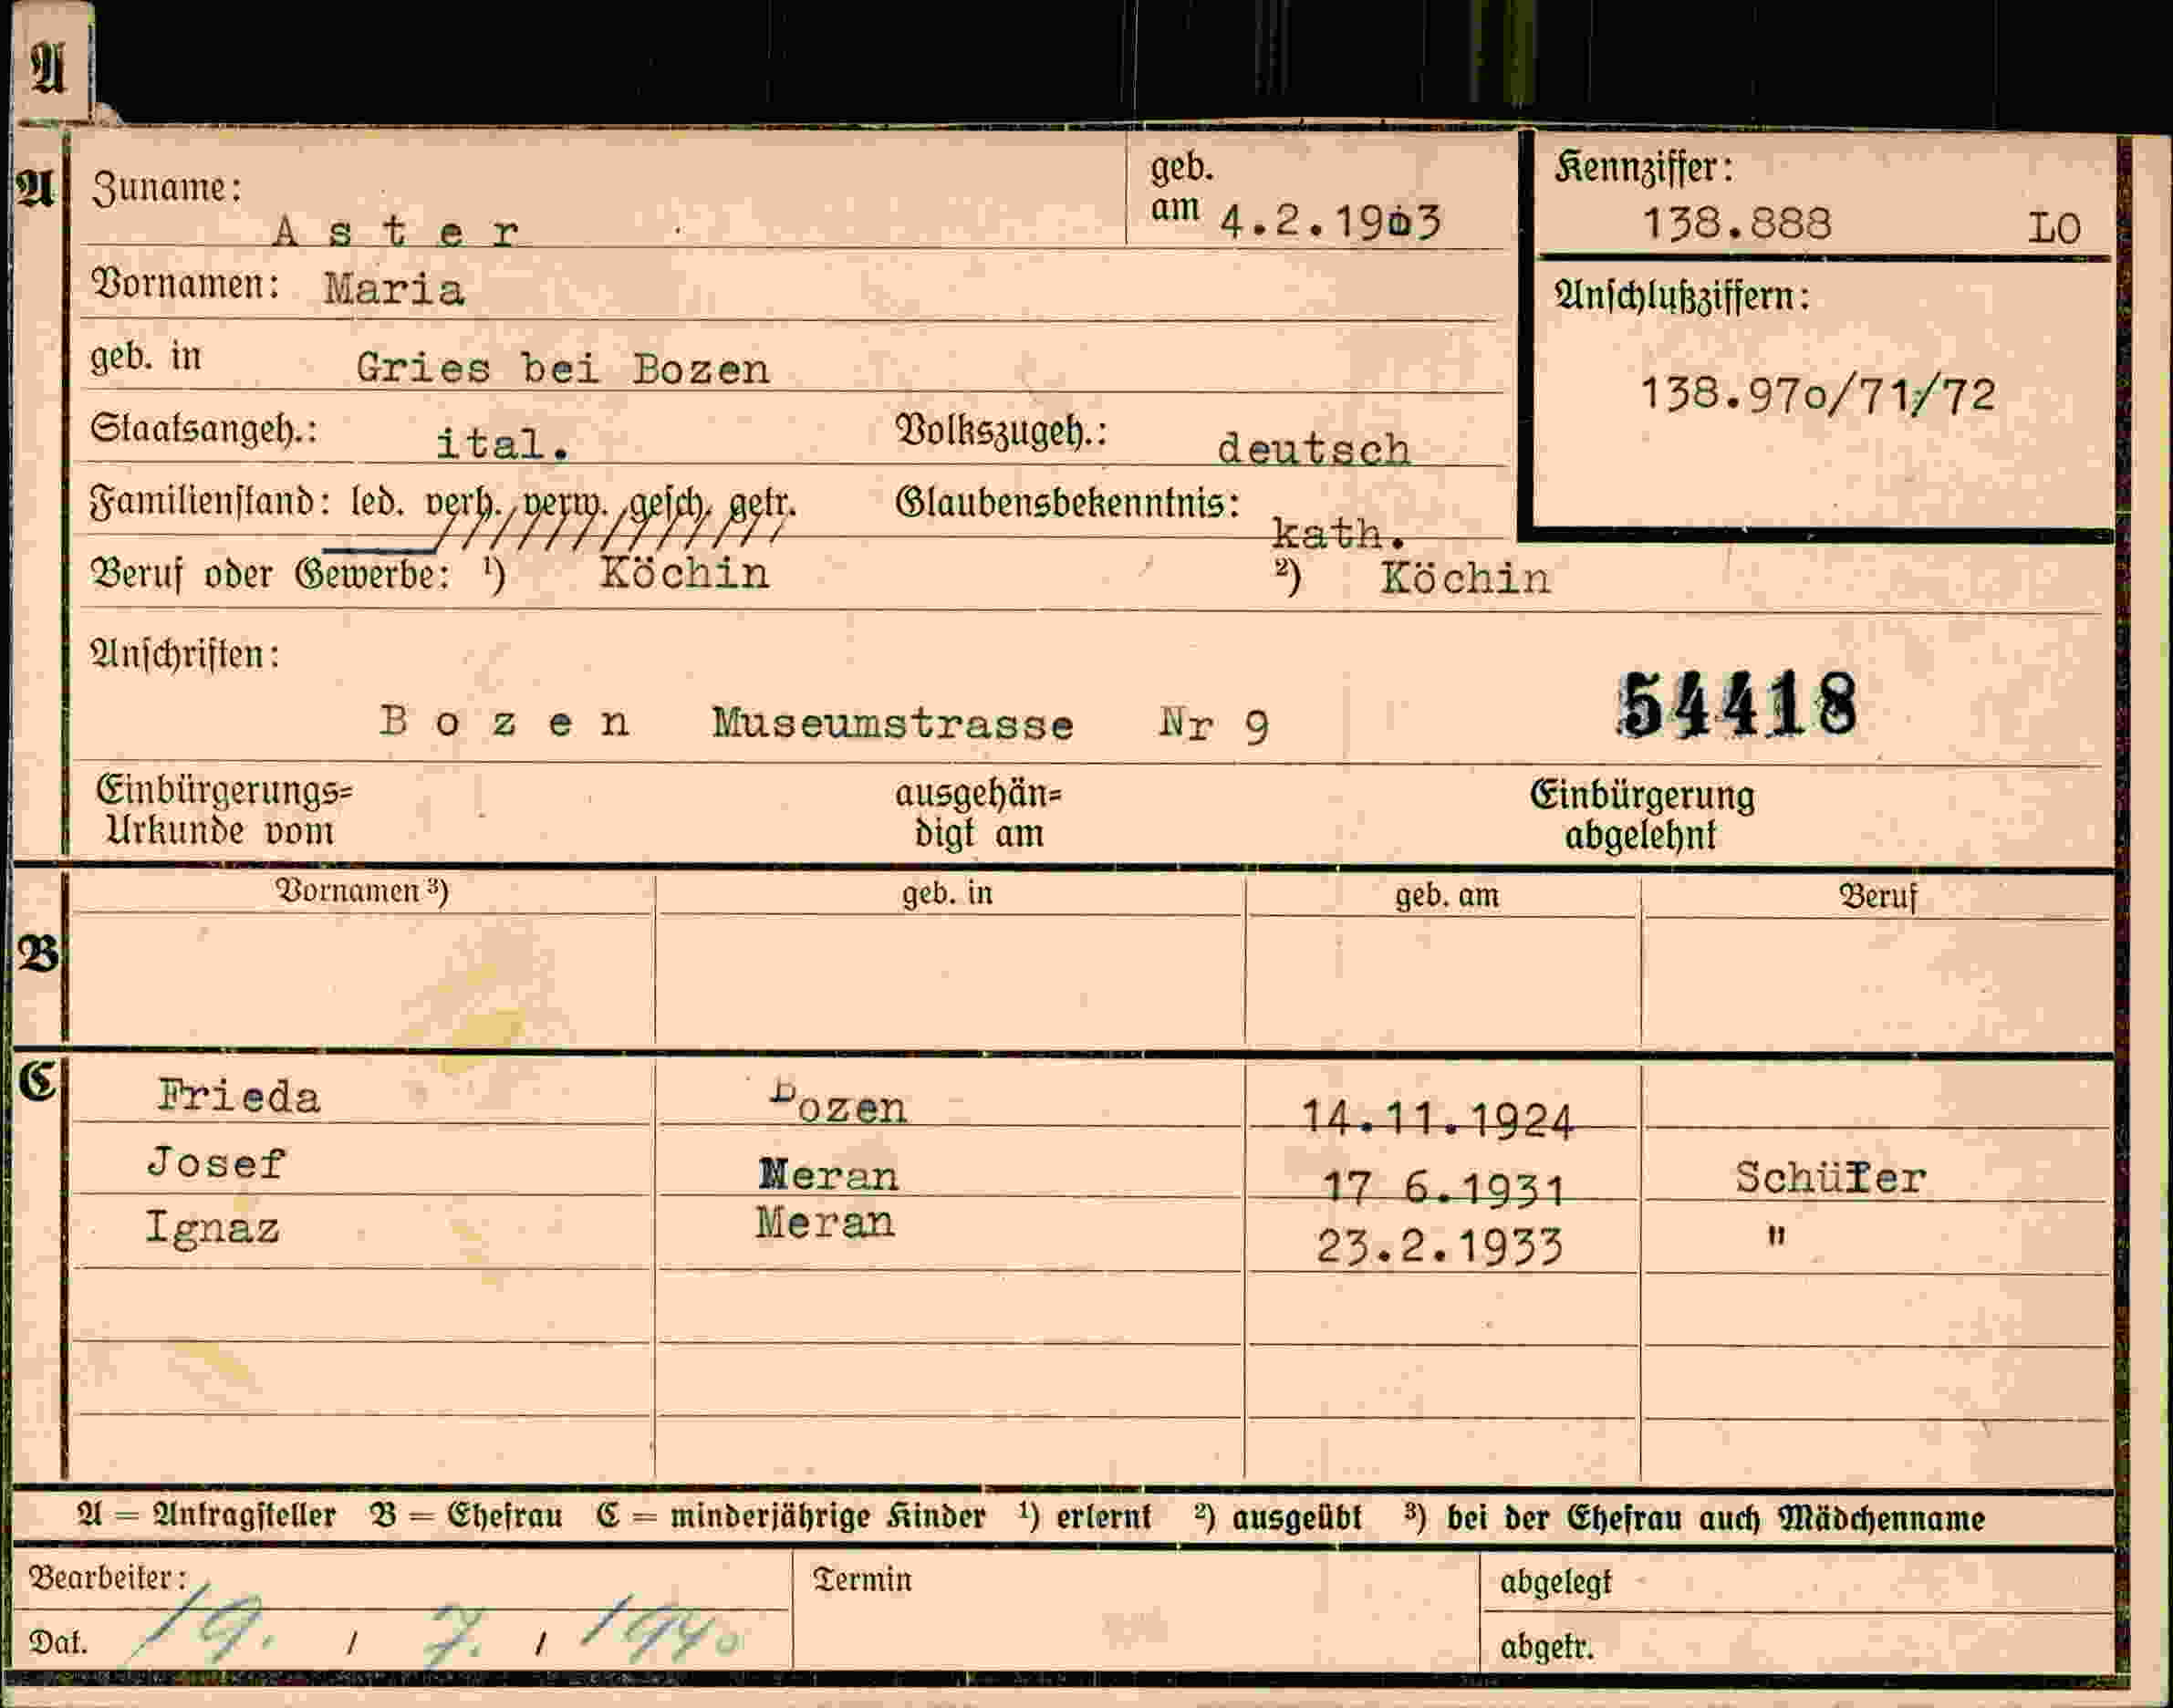 A
A
Zuname: Aster geb. am 4.2.1903
Kennziffer: 138.888 LO
Vornamen: Maria
Anschlußziffern: 138.97o/71/72
geb. in Gries bei Bozen
Staatsangeh.: ital. Volkszugeh.: deutsch
Familienstand: led. verh. verw. gesch. getr. Glaubensbekenntnis: kath.
Beruf oder Gewerbe: ¹) Köchin ²) Köchin
Anschriften:
Bozen Museumstrasse Nr 9 54418
Einbürgerungs= ausgehän= Einbürgerung
Urkunde vom digt am abgelehnt
Vornamen ³) geb. in geb. am Beruf
B
C
Frieda Bozen 14.11.1924
Josef Meran 17 6.1931 Schüler
Ignaz Meran 23.2.1933 "
A = Antragsteller B = Ehefrau C = minderjährige Kinder ¹) erlernt ²) ausgeübt ³) bei der Ehefrau auch Mädchenname
Bearbeiter: Termin abgelegt
Dat. 19. / 7. / 1940 abgetr.